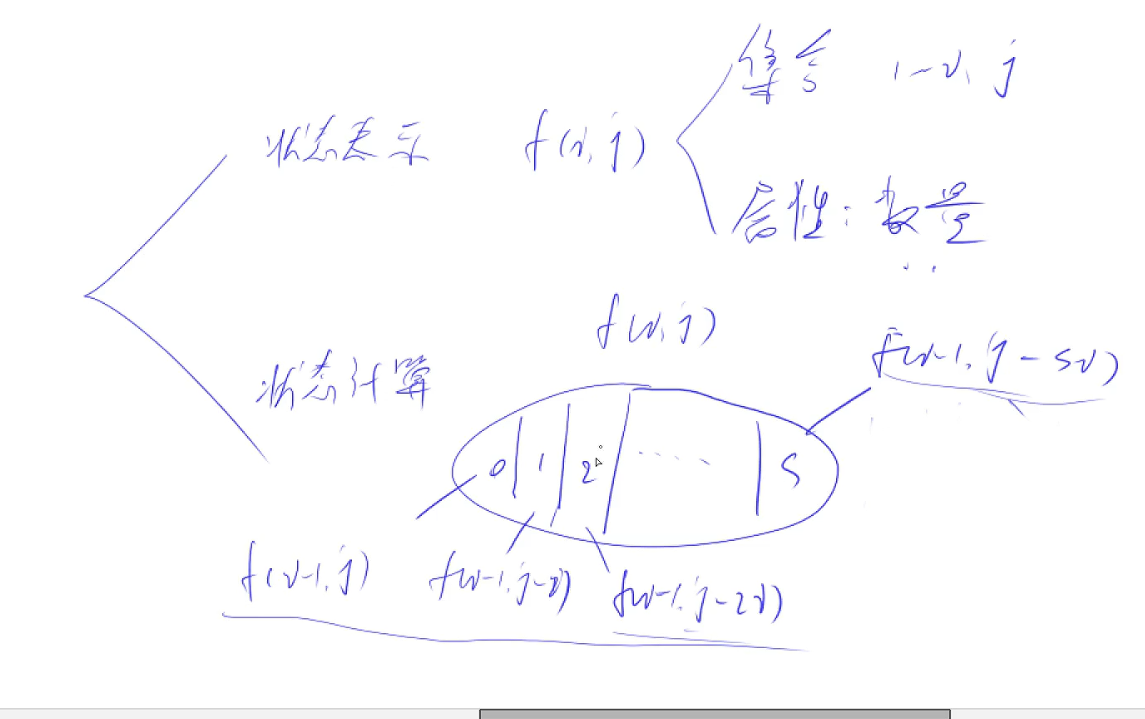 集合 1-i, j
状态表示 f(i, j)
属性: 数量
f(i, j)
f(i-1, j-sv)
状态计算
0 1 2 ..... s
f(i-1, j) f(i-1, j-v) f(i-1, j-2v)